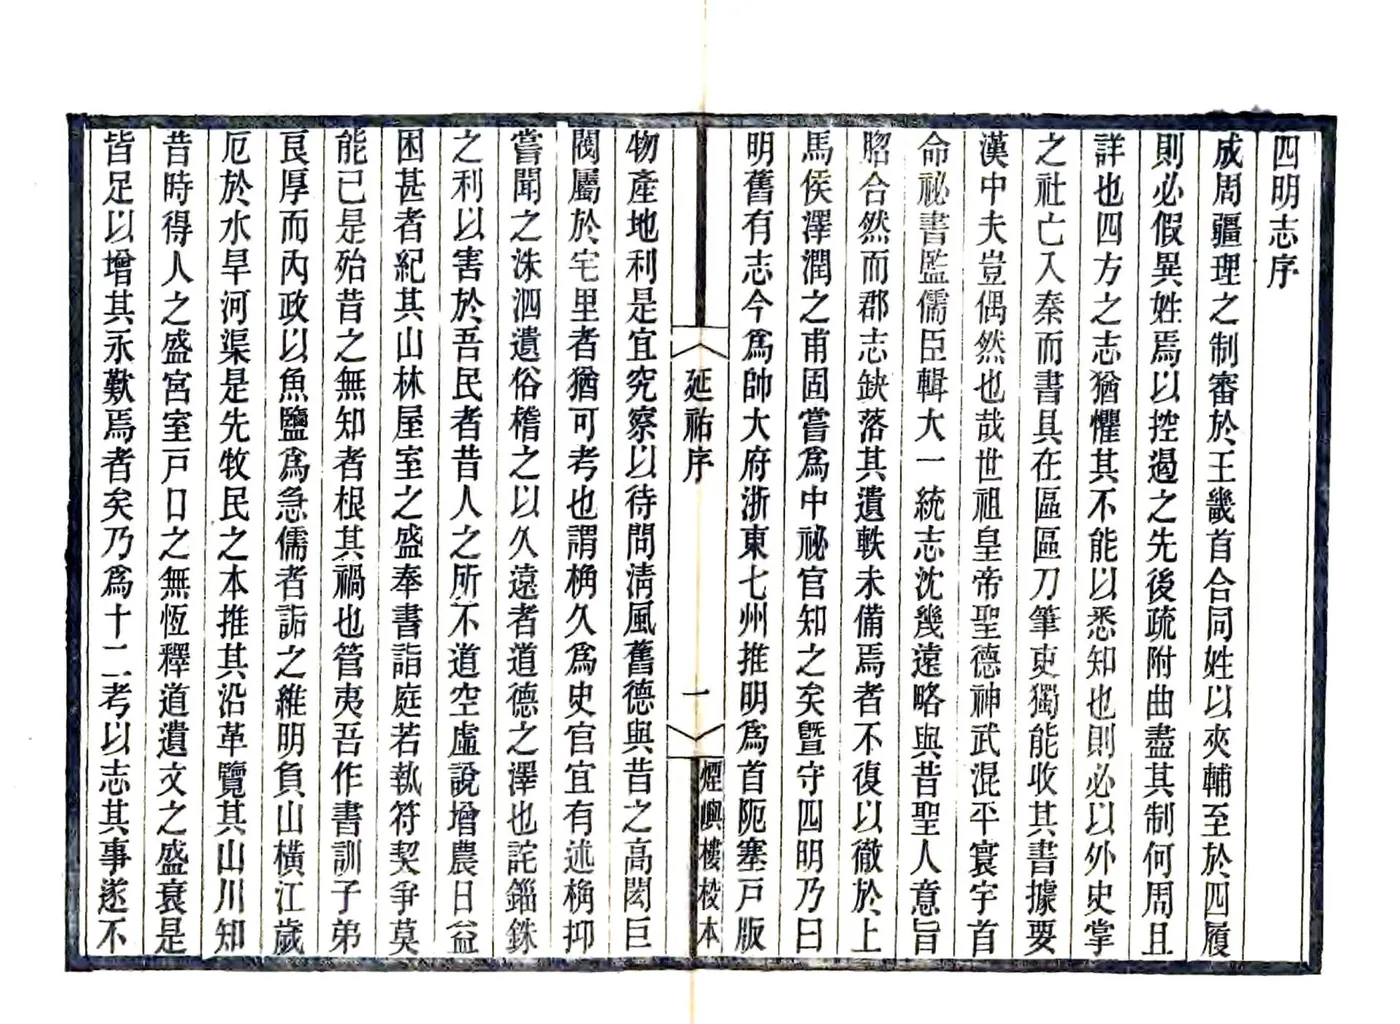 四明志序
成周疆理之制審於王畿首合同姓以夾輔至於四履
則必假異姓焉以控遏之先後疏附曲盡其制何周且
詳也四方之志猶懼其不能以悉知也則必以外史掌
之社亡入秦而書具在區區刀筆吏獨能收其書據要
漢中夫豈偶然也哉世祖皇帝聖德神武混平寰宇首
命祕書監儒臣輯大一統志沈幾遠略與昔聖人意旨
脗合然而郡志缺落其遺軼未備焉者不復以徹於上
馬侯澤潤之甫固嘗爲中祕官知之矣曁守四明乃曰
明舊有志今爲帥大府浙東七州推明爲首阨塞戸版
延祐序
一
煙嶼樓校本
物產地利是宜究察以待問淸風舊德與昔之高閎巨
閥屬於宅里者猶可考也謂桷久爲史官宜有述桷抑
嘗聞之洙泗遺俗稽之以久遠者道德之澤也詫錙銖
之利以害於吾民者昔人之所不道空虛說增農日益
困甚者紀其山林屋室之盛奉書詣庭若執符契爭莫
能已是殆昔之無知者根其禍也管夷吾作書訓子弟
良厚而內政以魚鹽爲急儒者詬之維明負山橫江歲
厄於水旱河渠是先牧民之本推其沿革覽其山川知
昔時得人之盛宮室戸口之無恆釋道遺文之盛衰是
皆足以增其永歎焉者矣乃爲十二考以志其事遂不